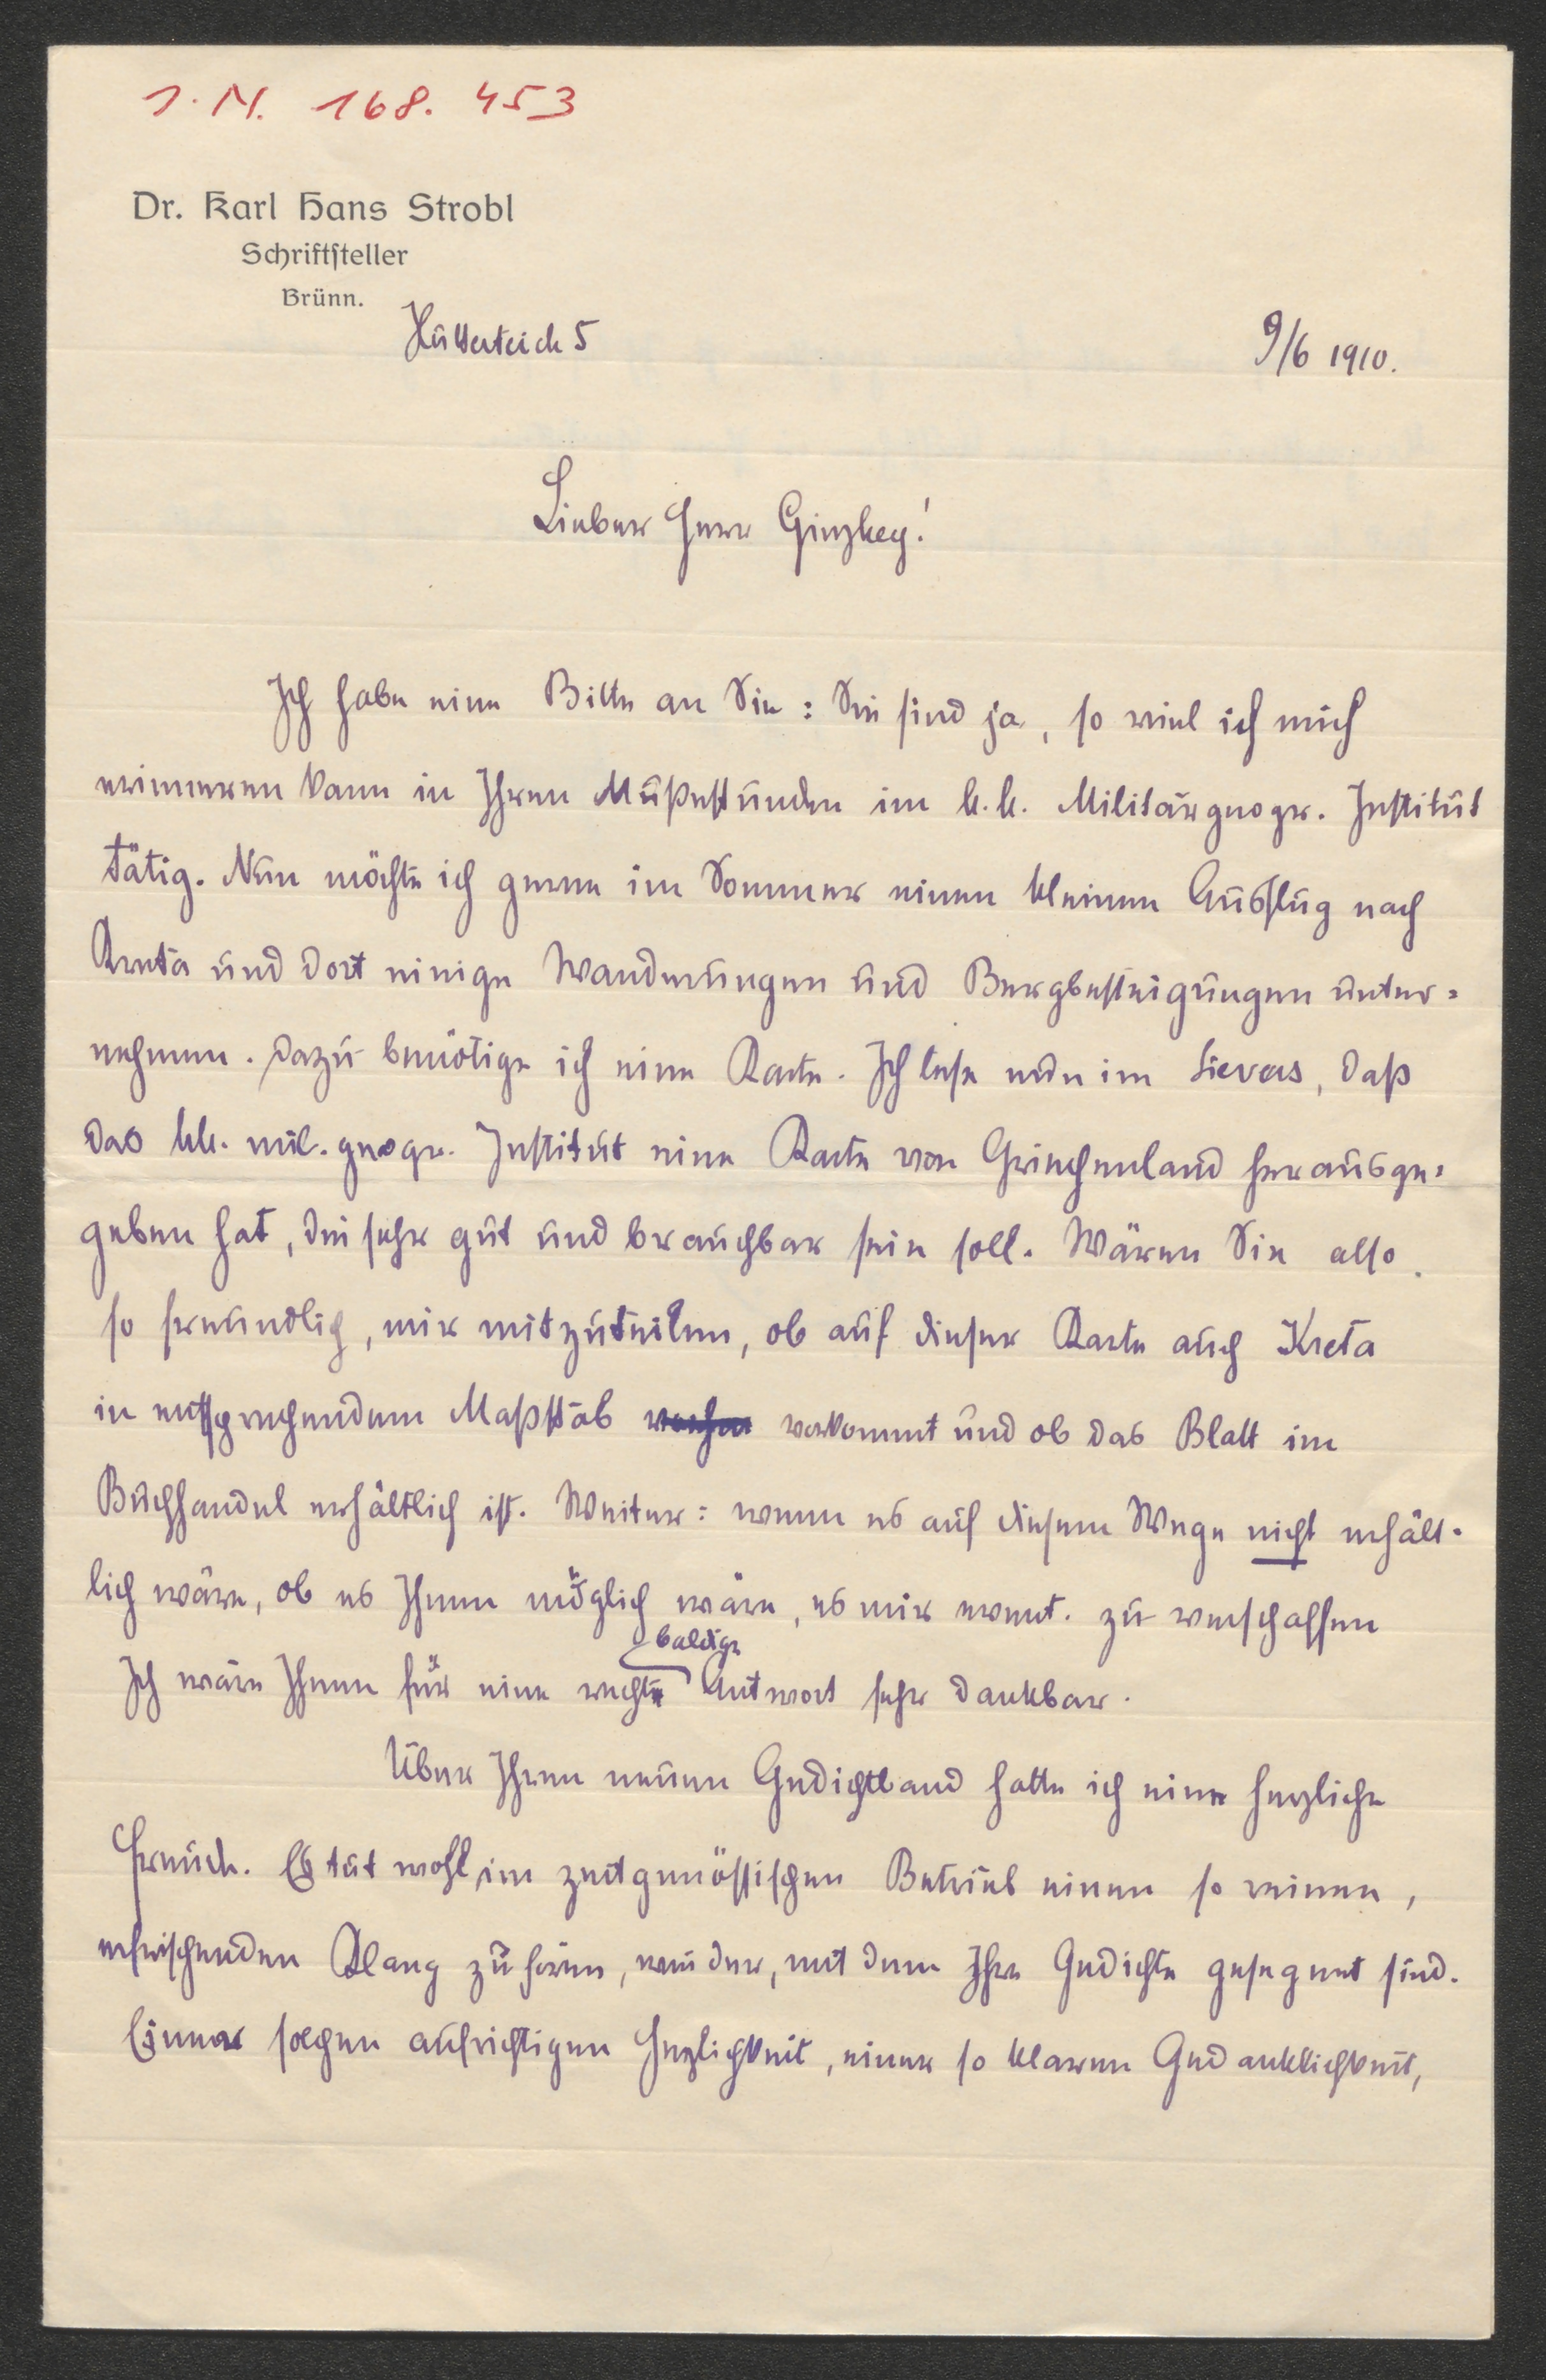 J. N. 168.453
Dr. Karl Hans Strobl
Schriftsteller
Brünn.
Hutterteich 5
9/6 1910.
Lieber Herr Ginzkey!
Ich habe eine Bitte an Sie: Sie sind ja, so viel ich mich
erinneren kann in Ihren Mußestunden im k.k. Militärgeogr. Institut
tätig. Nun möchte ich gerne im Sommer einen kleinen Ausflug nach
Kreta und dort einige Wanderungen und Bergbesteigungen unter-
nehmen. Dazu benötige ich eine Karte. Ich lese nun im Sievers, daß
das kk. mil. geogr. Institut eine Karte von Griechenland herausge-
geben hat, die sehr gut und brauchbar sein soll. Wären Sie also
so freundlich, mir mitzuteilen, ob auf dieser Karte auch Kreta
in entsprechendem Maßstab vorkommt und ob das Blatt im
Buchhandel erhältlich ist. Weiter: wenn es auf diesem Wege nicht erhält-
lich wäre, ob es Ihnen möglich wäre, es mir event. zu verschaffen
baldige
Ich wäre Ihnen für eine recht Antwort sehr dankbar.
Über Ihren neuen Gedichtband hatte ich eine herzliche
Freude. Es tut wohl im zeitgenössischen Betrieb einen so reinen,
erfrischenden Klang zu hören, wie der, mit dem Ihre Gedichte gesegnet sind.
Einer solchen aufrichtigen Herzlichkeit, einer so klaren Gedanklichkeit,